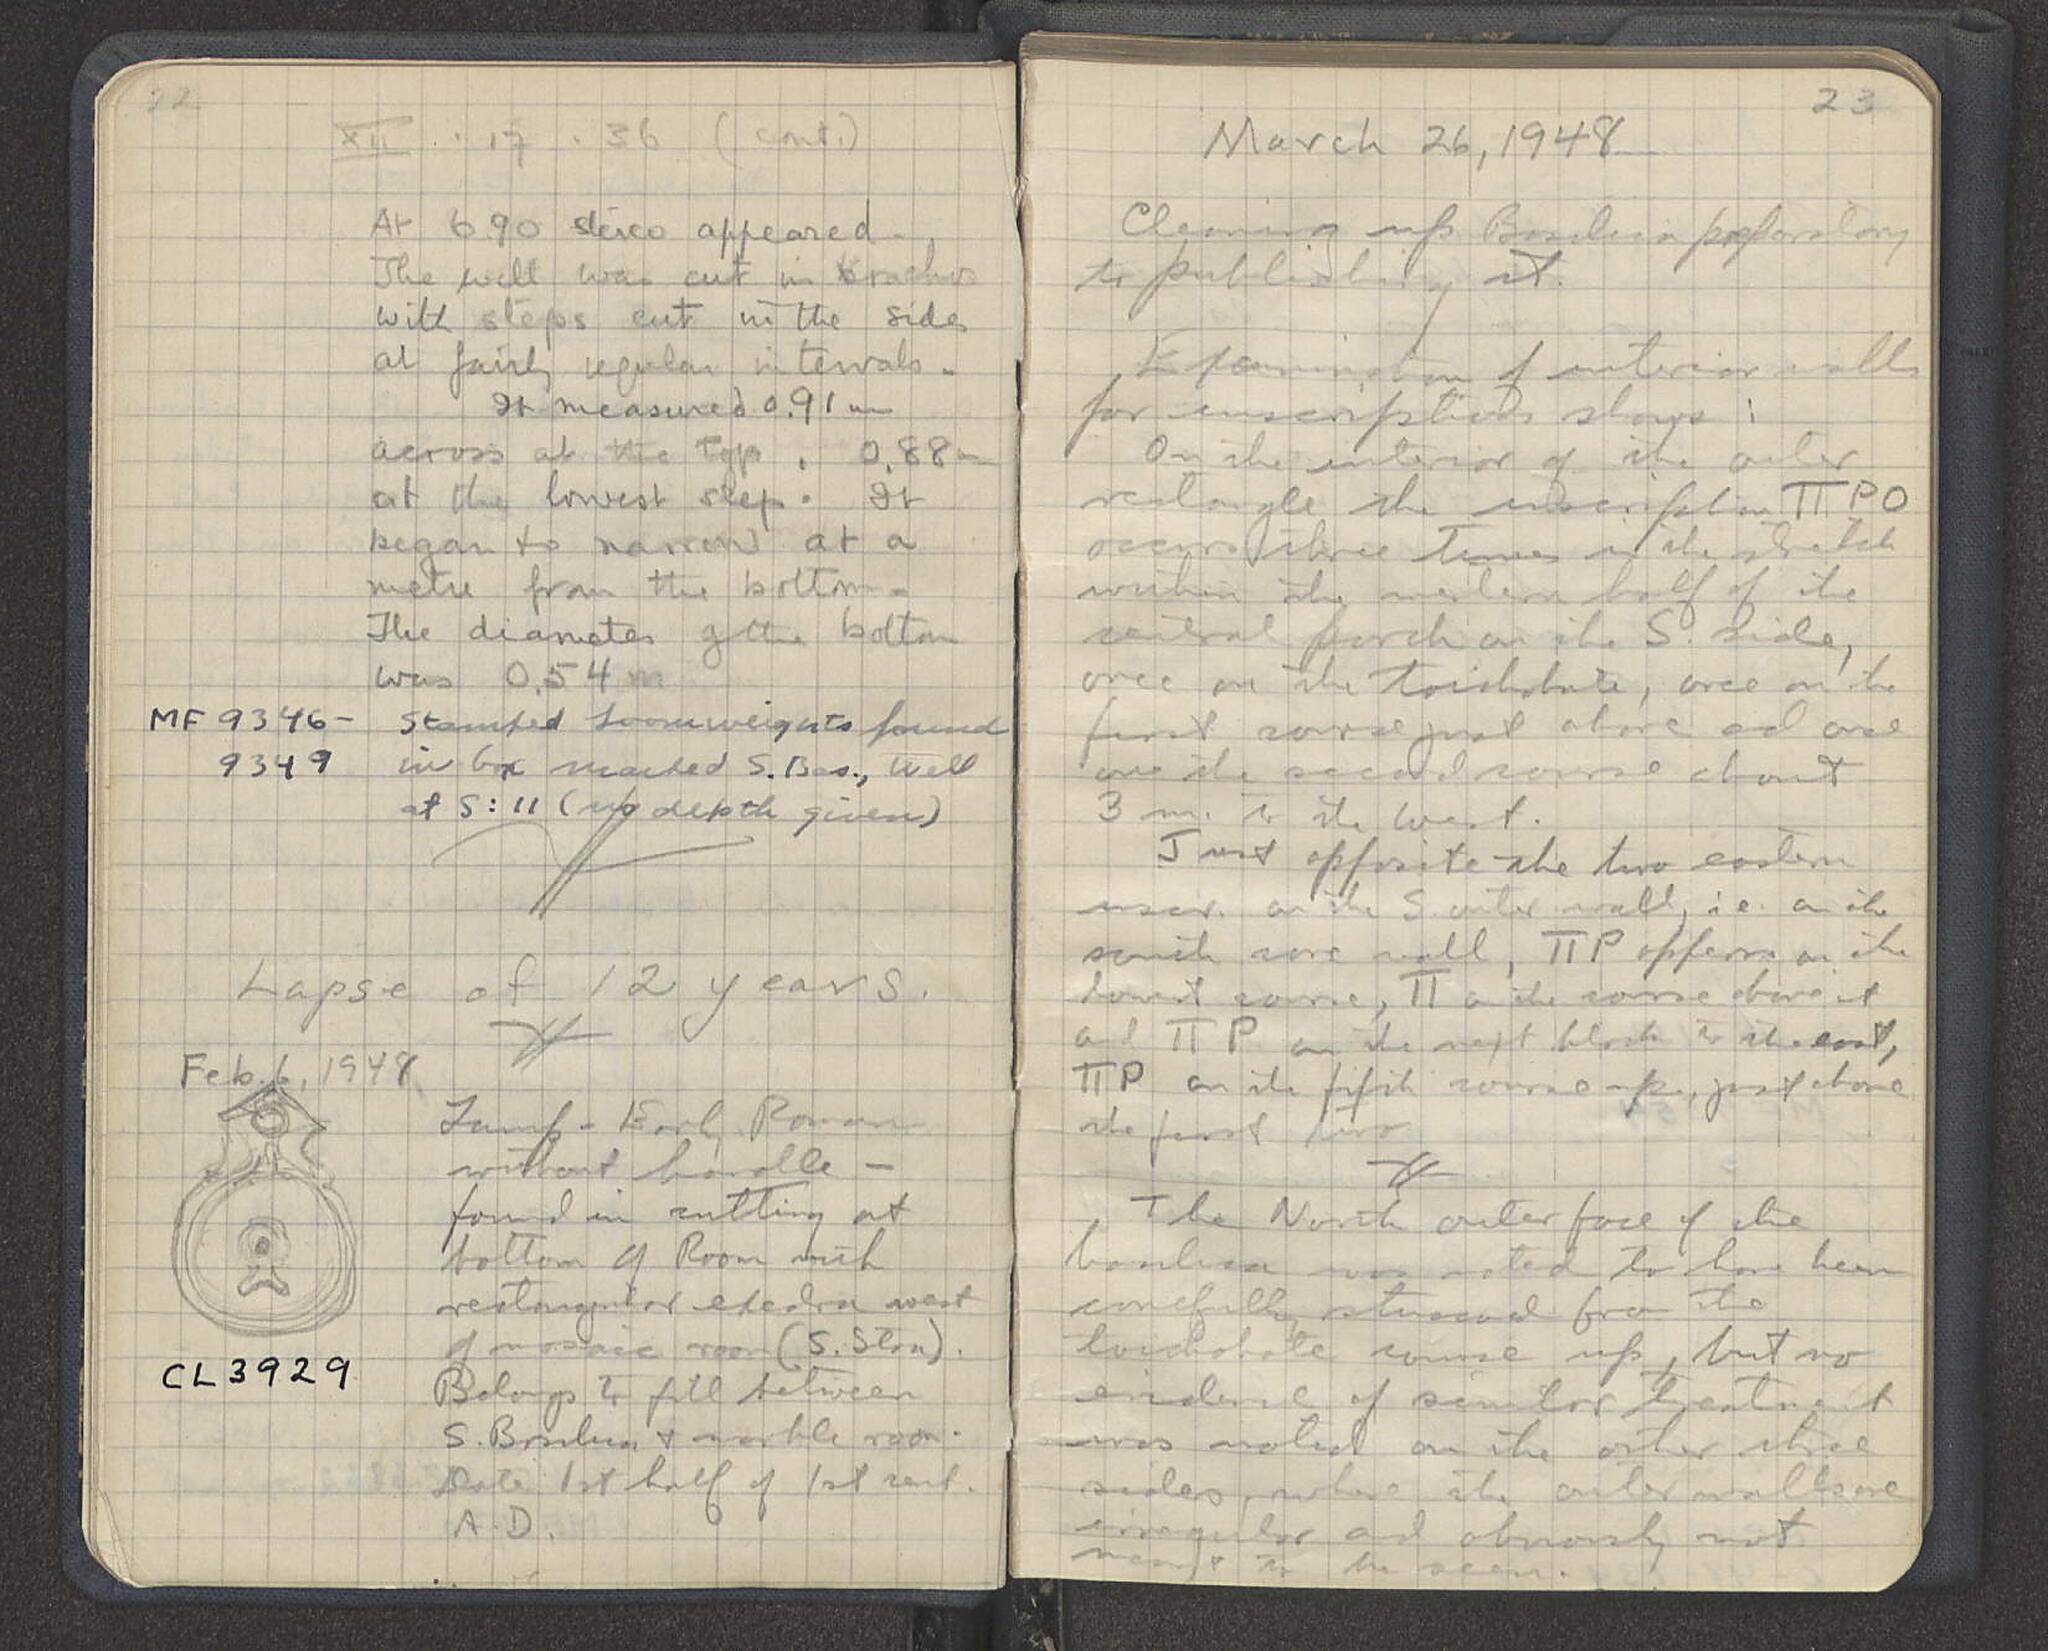 22
XII · 17 · 36 (cont.)
At 6.90 stereo appeared.
The well was cut in
with steps cut in the sides
at fairly regular intervals.
It measured 0.91 m
across at the top, 0.88 m
at the lowest step. It
began to narrow at a
metre from the bottom.
The diameter of the bottom
was 0.54 m
MF 9346- Stamped loomweights found
9349 in box marked S. Bas., Well
at S:11 (no depth given)
Lapse of 12 years.
Feb. 6, 1948
Lamp - Early Roman
without handle -
found in cutting at
bottom of Room with
rectangular exedra west
of mosaic room (S. Stoa).
CL 3929
Belongs to fill between
S. Basilica + marble room.
Date 1st half of 1st cent.
A.D.
23
March 26, 1948
Cleaning up Basilica preparatory
to publishing it.
Examination of interior walls
for inscriptions shows:
On the interior of the outer
rectangle the inscription ΠΡΟ
occurs three times in the stretch
within the western half of the
central porch on the S. side,
once on the toichobate, once on the
first course just above and once
on the second course about
3 m. to the West.
Just opposite the two eastern
inscr. on the S. outer wall, i.e. on the
south core wall, ΠΡ appears on the
lowest course, Π on the course above it
and ΠΡ on the next block to the east,
ΠΡ on the fifth course up, just above
the first two
The North outer face of the
basilica was noted to have been
carefully stuccoed from the
toichobate course up, but no
evidence of similar treatment
was noted on the other three
sides, where the outer walls are
irregular and obviously not
meant to be seen.